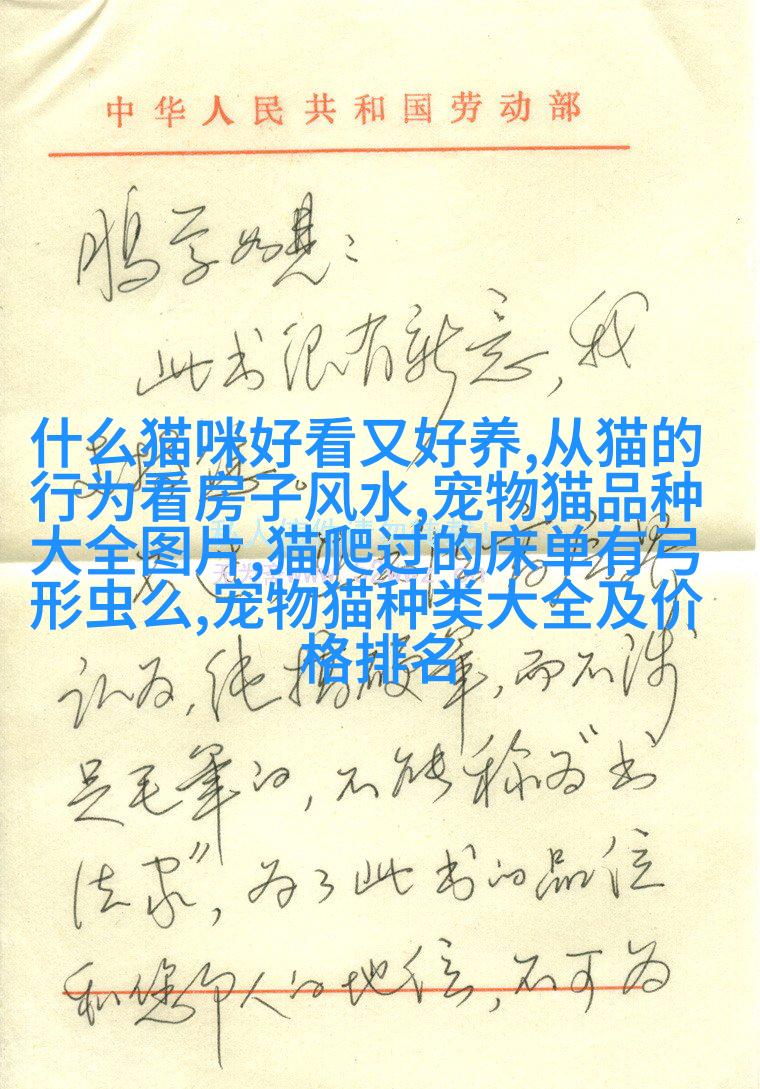 中华人民共和国劳动部
鹏学如晤：
此书很有新意，我
什么猫咪好看又好养,从猫的
行为看房子风水,宠物猫品种
大全图片,猫爬过的床单有弓
形虫么,宠物猫种类大全及价
格排名
认为，纯搞硬笔，而不涉
足毛笔的，不能称为“书
法家”，为了此书的品位
和您印人的地位，不可为